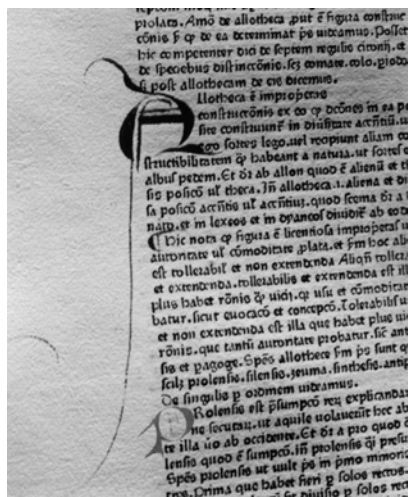 prolata. Amō de allotheca ,put ē figura construc
cōnis ꝑ ꝙ de ea determinat ps uideamus. Posset
hic competenter dici de septem regulis
de speciebus distinccōnis. scꝫ comate. colo.
si post allothecam de eis dicemus.
Allotheca ē improprietas
construccōnis ex eo ꝙ dcōnes in ea po
site construunt̄ in diuersitate accn̄tiū. u
ego sortes lego. uel recipiunt aliam co
structibilitatem ꝙ̄ habeant a natura. ut sortes e
albus pedem. Et dr̄ ab allon quod ē alienū et th
sis posicō ul̓ theca. Jn̄ allotheca .i. aliena et di
sa posicō accn̄tis ul̓ accn̄tiū. quod scema dr̄ a
et in lexeos et in dyaneos diuidit̄ ab eo
Hic nota ꝙ figura ē licenciosa improprietas
auctoritate ul̓ cōmoditate ,plata. et ẜm hoc
est tollerabil̓ et non extendenda Aliqn̄
et extendenda. tollerabilis et extendenda est ill
plus habet rōnis ꝙ̄ uicij. ꝙ usu et cōmoditate
batur. sicut euocacō et concepcō. Tolerabil̓
et non extendenda est illa que habet plus uic
rōnis. que tantū auctoritate probatur. sic̄ ant
sis et pagoge. Spēs allothece ẜm ps sunt q
scilꝫ prolensis. silensis. zeuma. sinthesis. antip
De singulis ꝑ ordinem uideamus.
PRolensis est p̄sumpcō rerū explicanda
ne secuturū. ut aquile uolauerūt hec ab
te illa u̓o ab occidente. Et dr̄ a pro quod ē
lensis quod ē sumpcō. in̄ prolensis q̄i presu
Spēs prolensis ut uult ps in p̄mo minoris
tres. Prima que habet fieri ꝑ solos rectos.